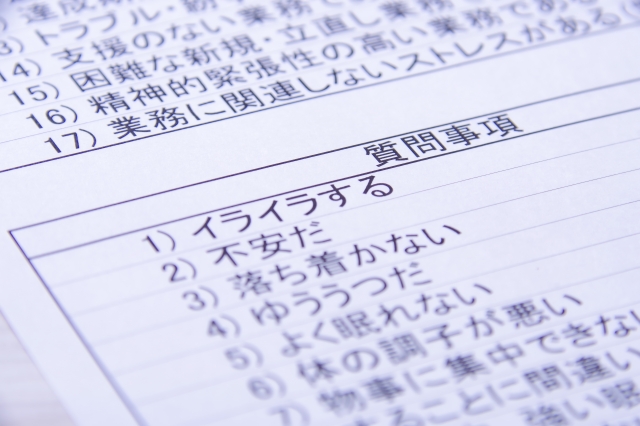 達成
13) トラブル・
14) 支援のない業務で
15) 困難な新規・立直し業務
16) 精神的緊張性の高い業務であ
17) 業務に関連しないストレスがある
質問事項
1) イライラする
2) 不安だ
3) 落ち着かない
4) ゆううつだ
5) よく眠れない
6) 体の調子が悪い
7) 物事に集中できない
することに間違い
強い眠